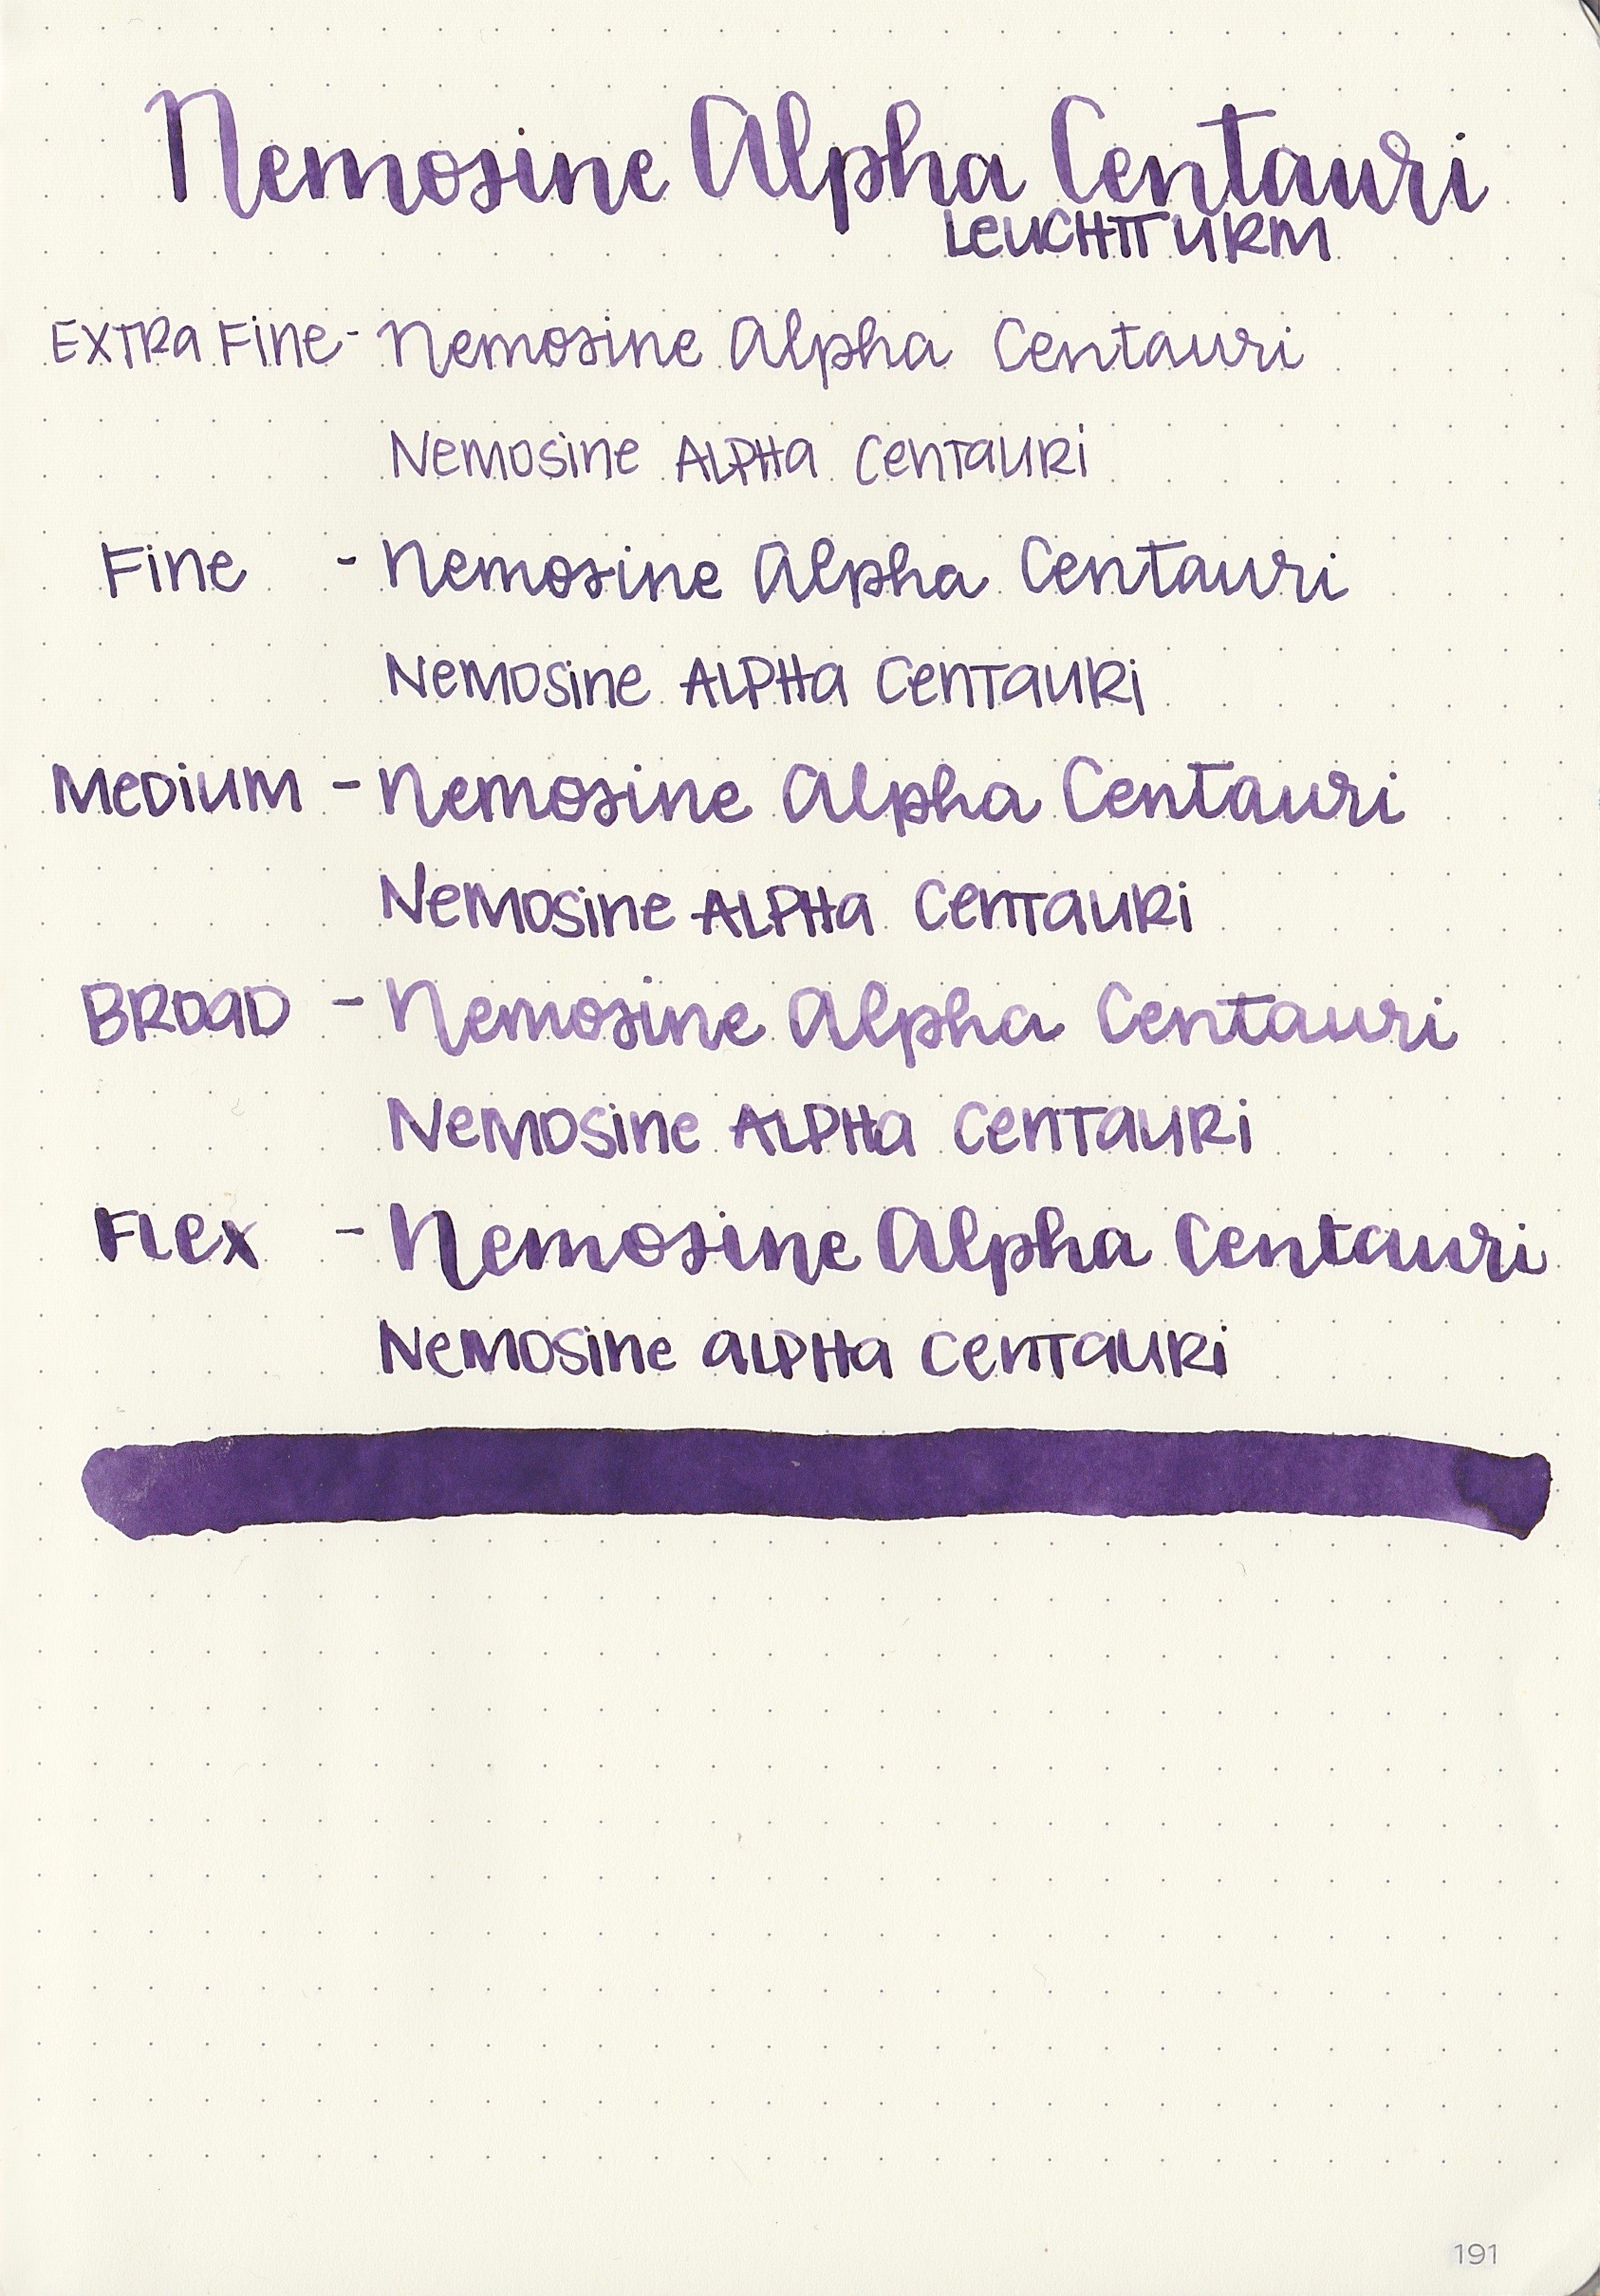 Nemosine Alpha Centauri
LEUCHTTURM
EXTRA FINE - Nemosine Alpha Centauri
NEMOSINE ALPHA CENTAURI
FINE - Nemosine Alpha Centauri
NEMOSINE ALPHA CENTAURI
MEDIUM - Nemosine Alpha Centauri
NEMOSINE ALPHA CENTAURI
BROAD - Nemosine Alpha Centauri
NEMOSINE ALPHA CENTAURI
FLEX - Nemosine Alpha Centauri
NEMOSINE ALPHA CENTAURI
191